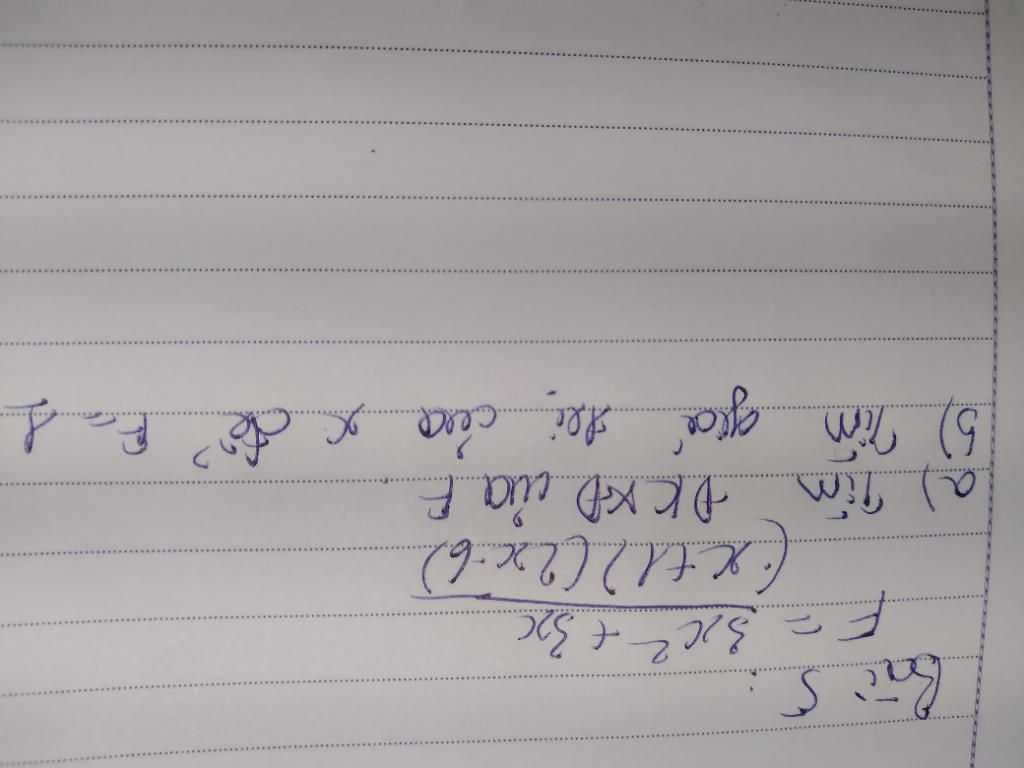 Bài 5:
F = 3x² + 3x
(x+1)(2x-6)
a) Tìm ĐKXĐ của F
b) Tìm giá trị của x để F = 1